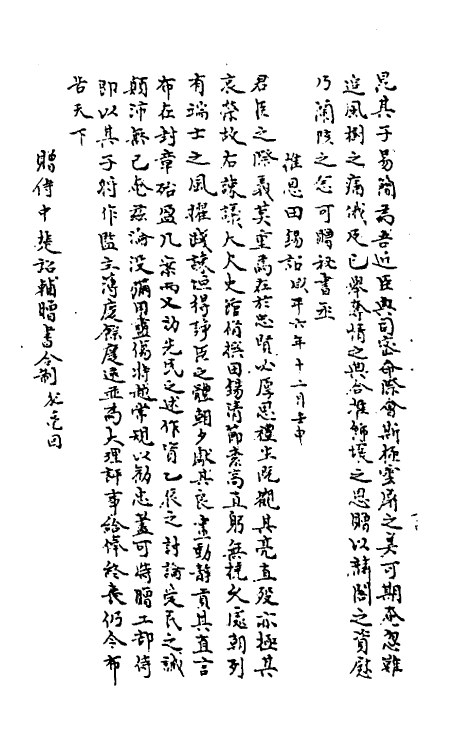 昆其子易簡為吾近臣典司密命際會斯極寵昇之美可期奄忽雖
追風樹之痛俄及已舉尊情之典合推錫壤之恩贈以麟閣之資慰
乃蘭陔之念可贈秘書丞
推恩田錫詔咸平六年十二月壬申
君臣之際義莫重焉在於忠賢必厚恩禮生既觀其亮直歿亦極其
哀榮故右諫議大夫史館修撰田錫清節素高直躬無撓久處朝列
有端士之風擢踐諫垣得諍臣之體朝夕獻其良畫動靜貢其直言
布在封章殆盈几案而又訪先民之述作資乙夜之討論定民之誠
顛沛無已奄茲淪沒彌用盡傷將越常規以勸忠藎可特贈工部侍
即以其子將作監主簿慶餘慶遠並為大理評事給俸終喪仍令布
告天下
贈侍中楚昭輔贈書令制